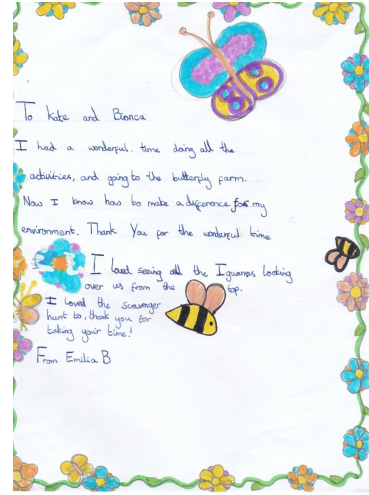 To Kate and Bianca
I had a wonderful time doing all the
activities, and going to the butterfly farm.
Now I know how to make a difference for my
environment. Thank You for the wonderful time
I loved seeing all the Iguanas looking
over us from the top.
I loved the scavenger
hunt to, thank you for
taking your time!
From Emilia B